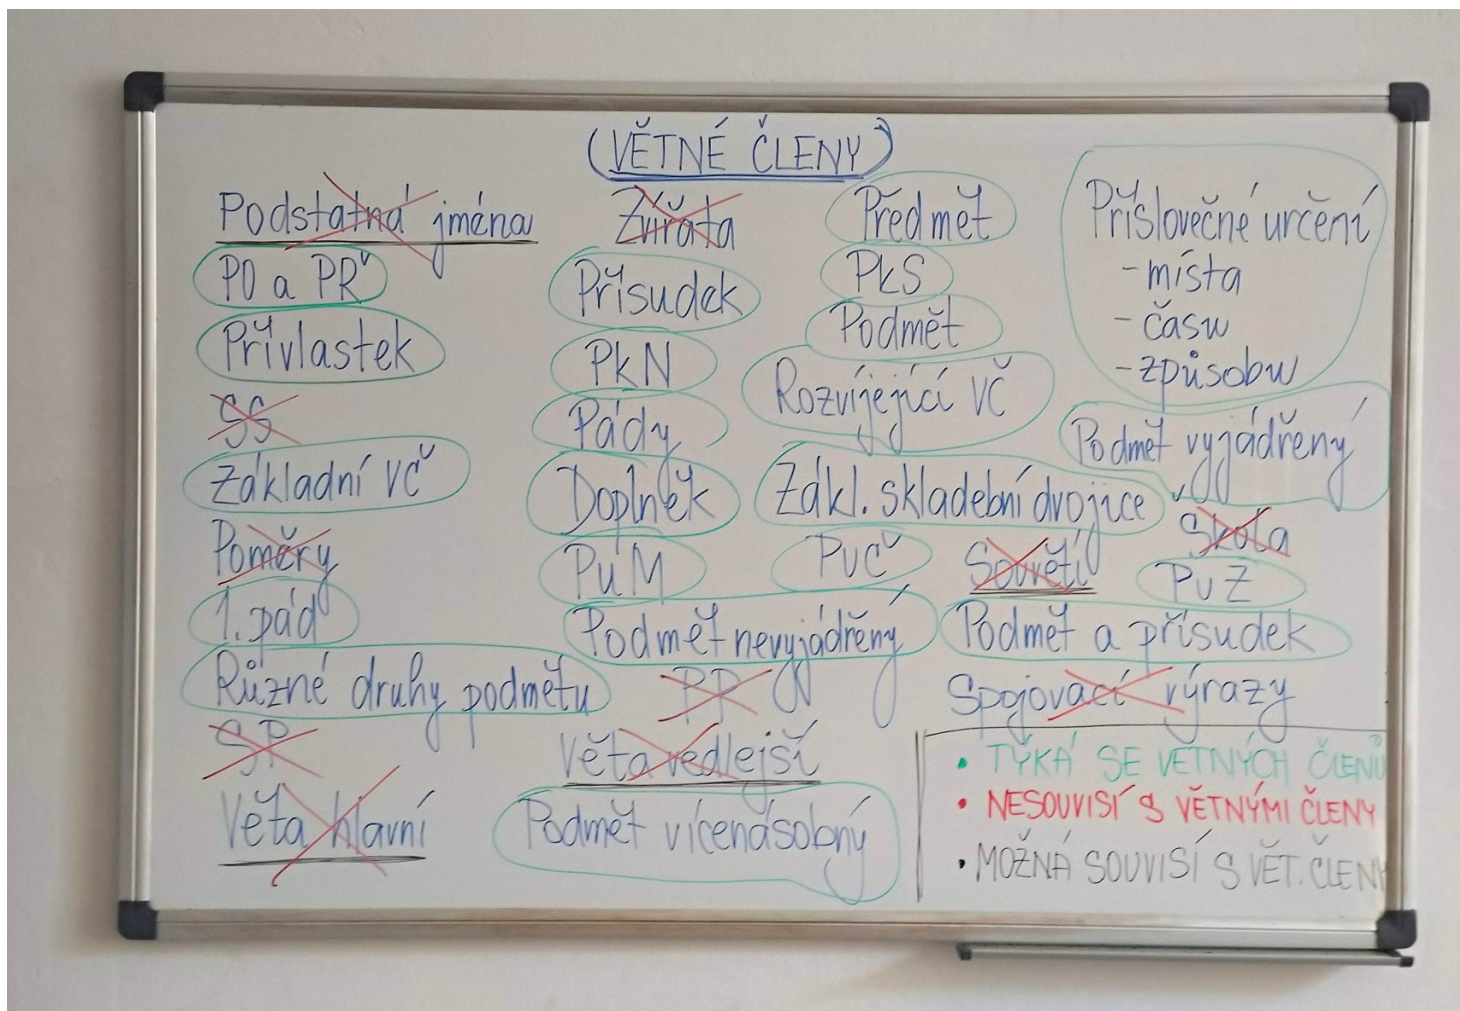 (VĚTNÉ ČLENY)
Podstatná jména
PO a PŘ
Přívlastek
SS
Základní VČ
Poměry
1. pád
Různé druhy podmětu
SP
Věta hlavní
Zvířata
Přísudek
PkN
Pády
Doplněk
PuM
Podmět nevyjádřený
PP
Věta vedlejší
Podmět vícenásobný
Předmět
PkS
Podmět
Rozvíjející VČ
Zákl. skladební dvojice
PuČ
Souvětí
Podmět a přísudek
Spojovací výrazy
Příslovečné určení
- místa
- času
- způsobu
Podmět vyjádřený
Škola
PuZ
• TÝKÁ SE VĚTNÝCH ČLENŮ
• NESOUVISÍ S VĚTNÝMI ČLENY
• MOŽNÁ SOUVISÍ S VĚT. ČLENY